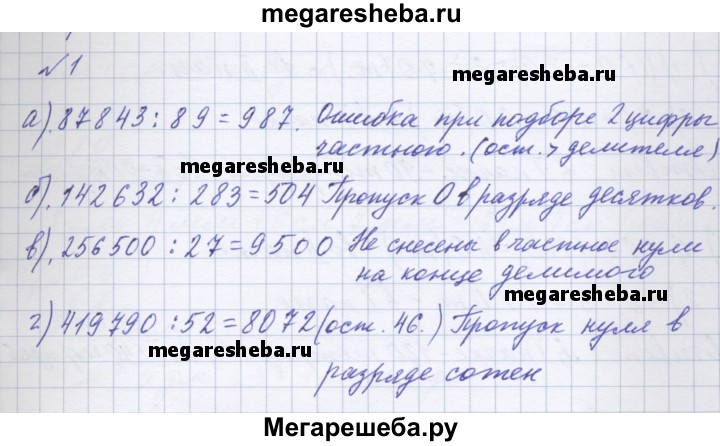 megaresheba.ru
№1
megaresheba.ru
а). 87843 : 89 = 987. Ошибка при подборе 2 цифры
частного. (ост. > делителя)
megaresheba.ru
б). 142632 : 283 = 504 Пропуск 0 в разряде десятков.
в). 256500 : 27 = 9500 Не снесены в частное нули
на конце делимого
megaresheba.ru
г) 419790 : 52 = 8072 (ост. 46.) Пропуск нуля в
megaresheba.ru
разряде сотен
Мегарешеба.ру